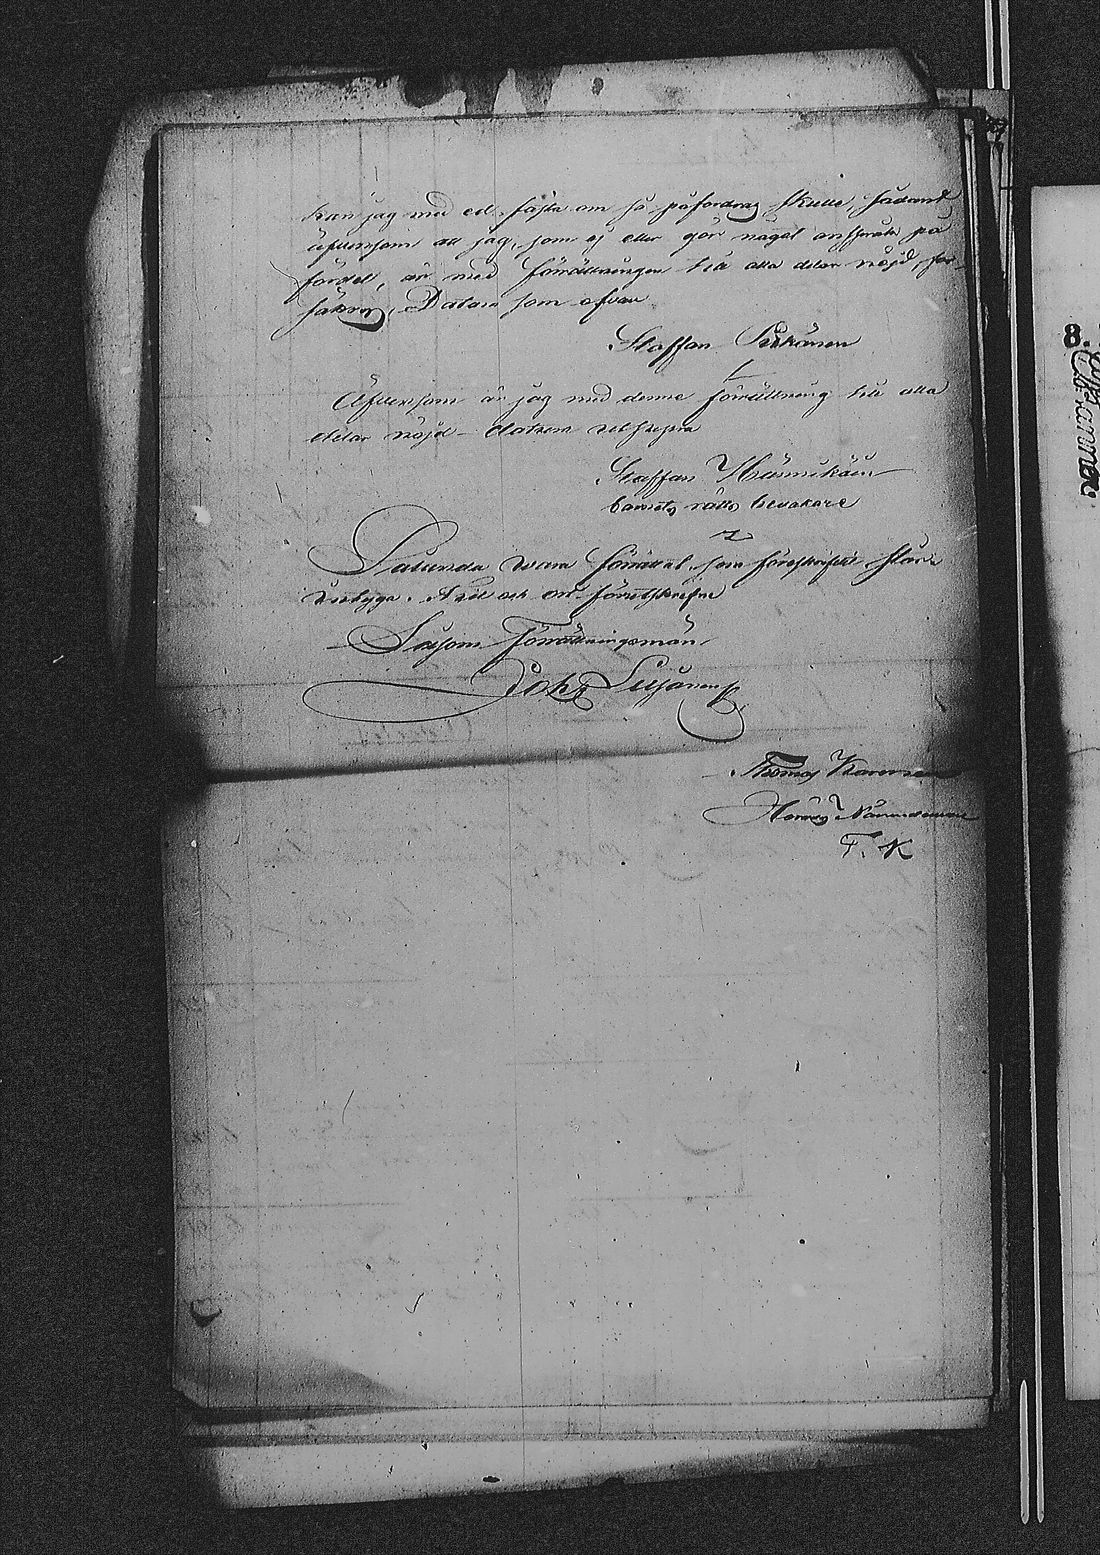 kan jag med ed fästa om så påfordras skulle, sådant
äfvensom att jag, som ej eller gör något anspråk på
fördel, är med förrättningen till alla delar nöjd, för-
säkras, Datum som ofvan
Staffan Pekkonen
Äfvensom är jag med denne förrättning till alla
delar nöjd - datum utsupra
Staffan Hännikäin
barnets rätts bevakare
Sålunda vara förrättat, som föreskrifvit står
betyga. År och ort förutskrefne
Såsom Förrättningsmän
Joh
Thomas
Henrik
T. K
8.